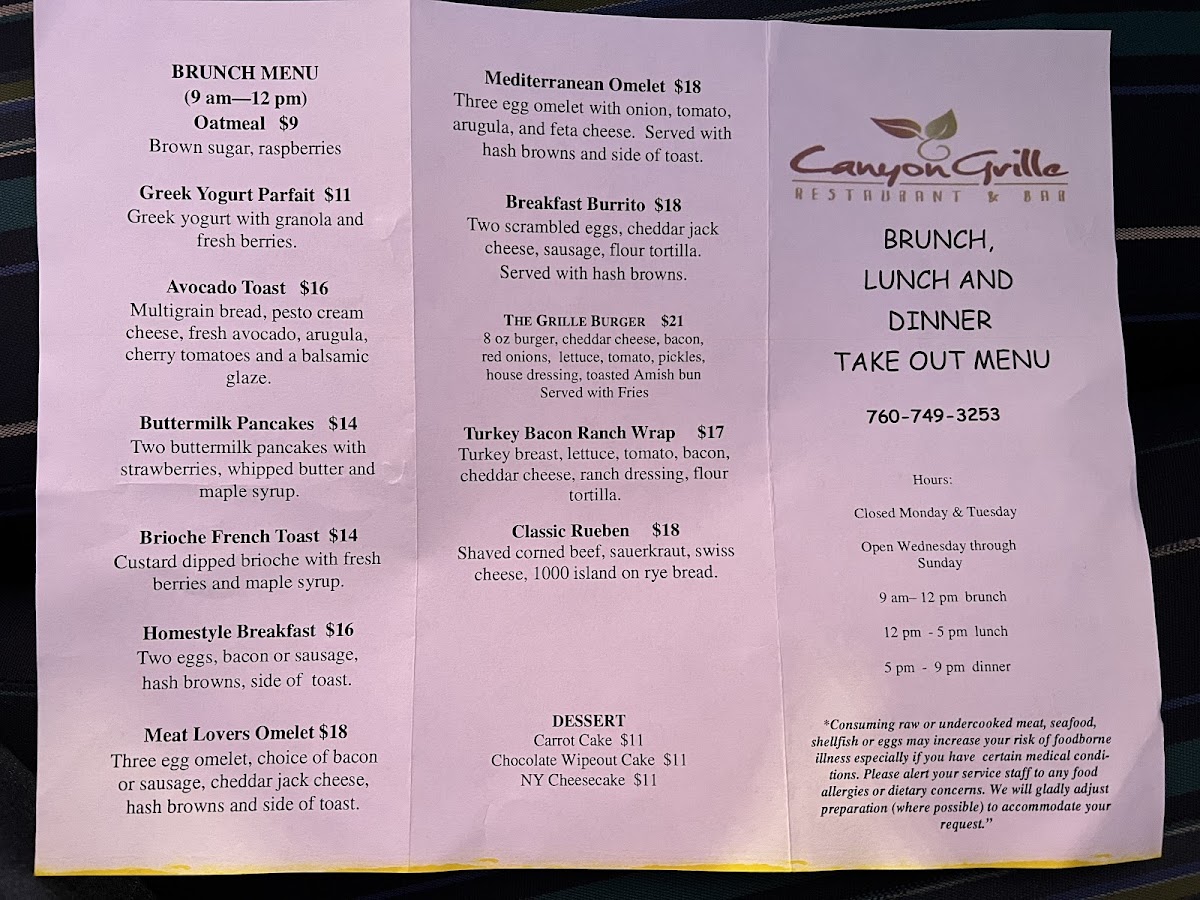 BRUNCH MENU
(9 am—12 pm)
Oatmeal $9
Brown sugar, raspberries
Greek Yogurt Parfait $11
Greek yogurt with granola and
fresh berries.
Avocado Toast $16
Multigrain bread, pesto cream
cheese, fresh avocado, arugula,
cherry tomatoes and a balsamic
glaze.
Buttermilk Pancakes $14
Two buttermilk pancakes with
strawberries, whipped butter and
maple syrup.
Brioche French Toast $14
Custard dipped brioche with fresh
berries and maple syrup.
Homestyle Breakfast $16
Two eggs, bacon or sausage,
hash browns, side of toast.
Meat Lovers Omelet $18
Three egg omelet, choice of bacon
or sausage, cheddar jack cheese,
hash browns and side of toast.
Mediterranean Omelet $18
Three egg omelet with onion, tomato,
arugula, and feta cheese. Served with
hash browns and side of toast.
Breakfast Burrito $18
Two scrambled eggs, cheddar jack
cheese, sausage, flour tortilla.
Served with hash browns.
THE GRILLE BURGER $21
8 oz burger, cheddar cheese, bacon,
red onions, lettuce, tomato, pickles,
house dressing, toasted Amish bun
Served with Fries
Turkey Bacon Ranch Wrap $17
Turkey breast, lettuce, tomato, bacon,
cheddar cheese, ranch dressing, flour
tortilla.
Classic Rueben $18
Shaved corned beef, sauerkraut, swiss
cheese, 1000 island on rye bread.
DESSERT
Carrot Cake $11
Chocolate Wipeout Cake $11
NY Cheesecake $11
Canyon Grille
RESTAURANT & BAR
BRUNCH,
LUNCH AND
DINNER
TAKE OUT MENU
760-749-3253
Hours:
Closed Monday & Tuesday
Open Wednesday through
Sunday
9 am– 12 pm brunch
12 pm - 5 pm lunch
5 pm - 9 pm dinner
*Consuming raw or undercooked meat, seafood,
shellfish or eggs may increase your risk of foodborne
illness especially if you have certain medical condi-
tions. Please alert your service staff to any food
allergies or dietary concerns. We will gladly adjust
preparation (where possible) to accommodate your
request.”